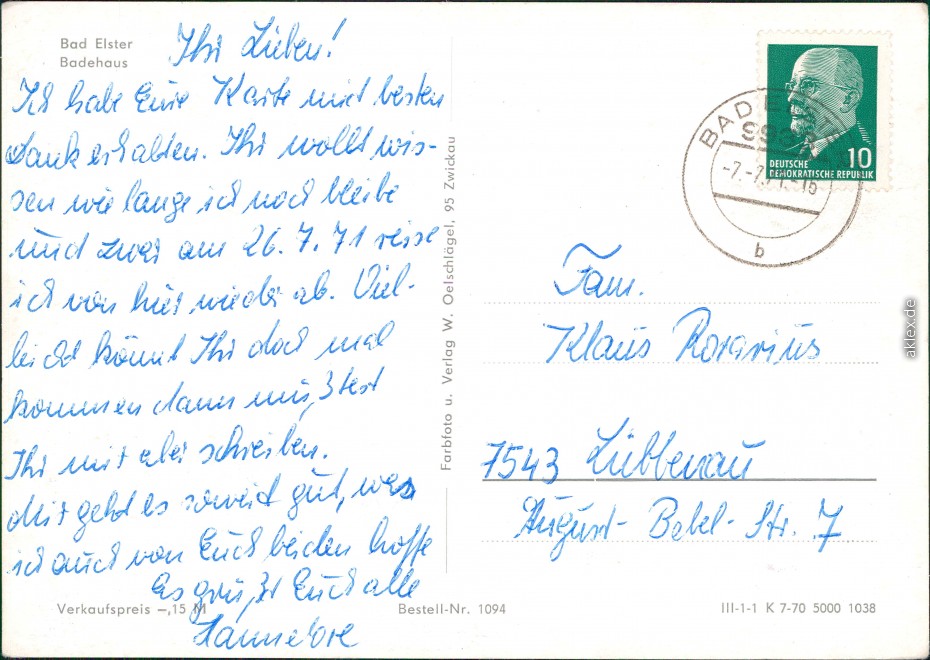 Bad Elster
Badehaus
Ihr Lieben!
Ich habe Eure Karte mit besten
Dank erhalten. Ihr wollt wis-
sen wie lange ich noch bleibe
und zwar am 26.7.71 reise
ich von hier wieder ab. Viel-
leicht könnt Ihr doch mal
kommen dann müßtest
Ihr mir aber schreiben.
Mir geht es soweit gut, was
ich auch von Euch beiden hoffe
Es grüßt Euch alle
Hannelore
Verkaufspreis -,15 M
Bestell-Nr. 1094
III-1-1 K 7-70 5000 1038
Farbfoto u. Verlag W. Oelschlägel, 95 Zwickau
BAD ELST
-7.-7.71.-16
b
10
DEUTSCHE
DEMOKRATISCHE REPUBLIK
Fam.
Klaus Rorarius
7543 Lübbenau
August-Bebel-Str. 7
aklex.de